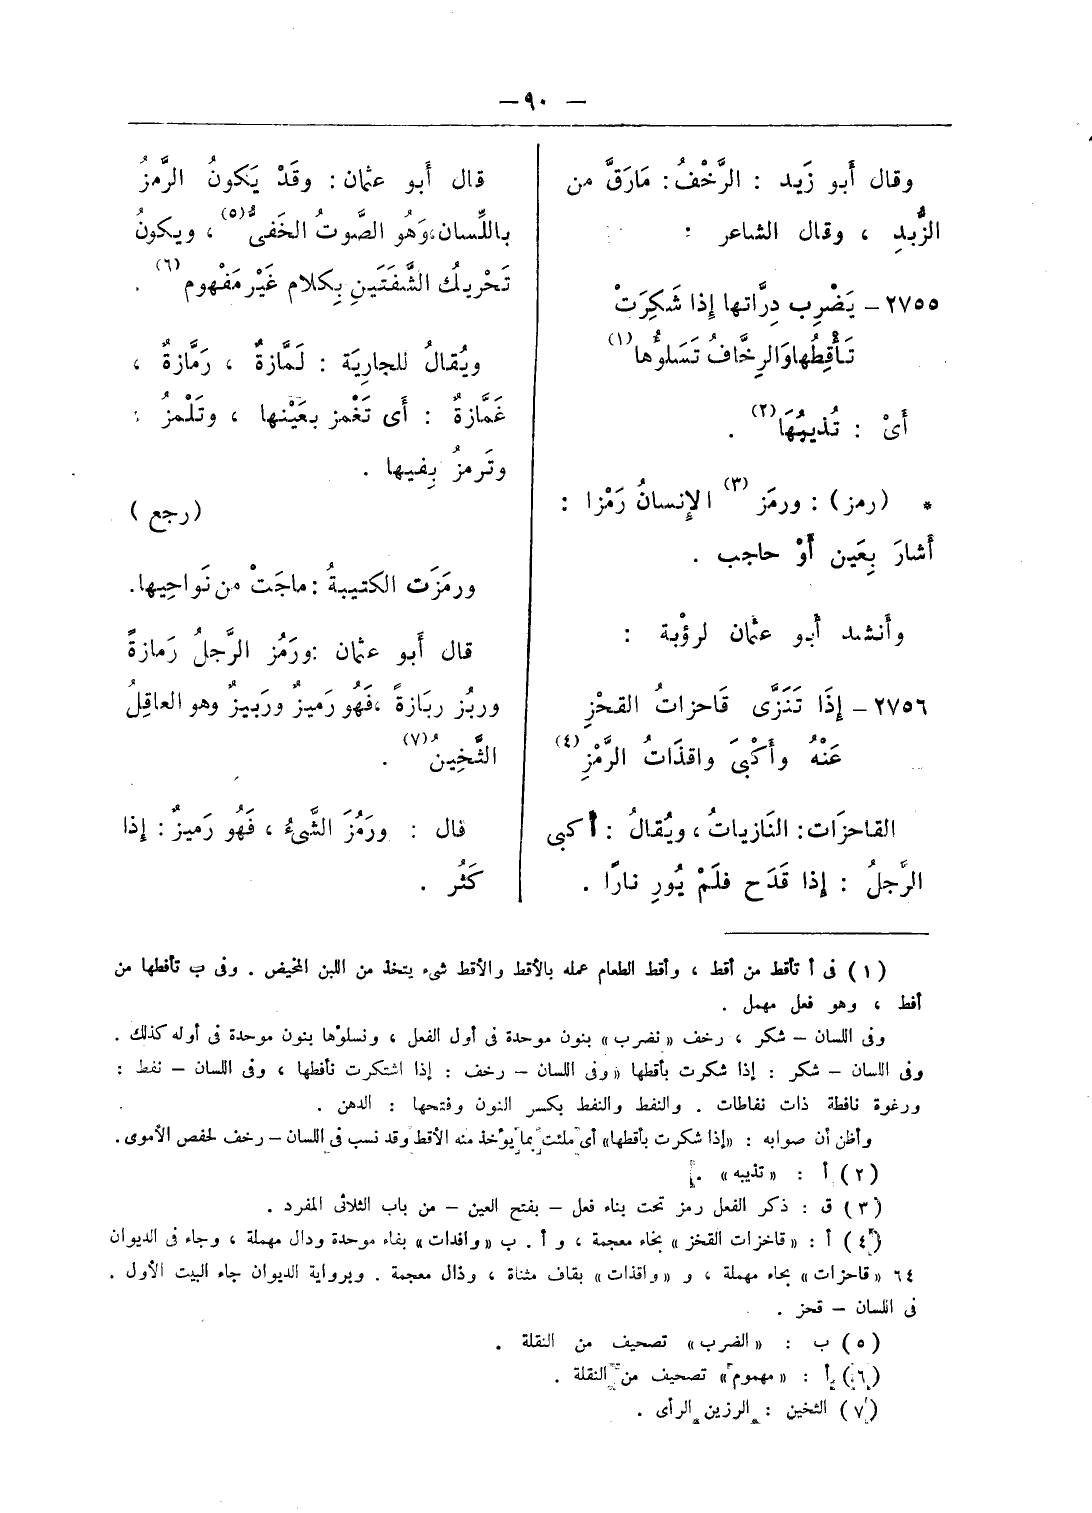 — ٩٠ —
وقال أَبو زَيد : الرَّخْفُ : مَارَقَّ من
الزُّبدِ ، وقال الشاعر :
٢٧٥٥ – يَضْرِب دِرَّاتها إِذا شَكِرَتْ
تَأْقِطُها وَالرِخَّافُ تَسَلوُها (١)
أَىْ : تُذيبُهَا (٢) .
* (رمز) : ورمَز (٣) الإِنسانُ رَمْزا :
أَشارَ بِعَين أَوْ حاجب .
وأَنشد أَبو عثمان لرؤبة :
٢٧٥٦ – إِذَا تَنَزَّى قَاحزاتُ القحْزِ
عَنْهُ وأَكْبىَ واقذَاتُ الرَّمْزِ (٤)
القاحزَات : النَازياتُ ، ويُقالُ : أَكبى
الرَّجلُ : إِذا قَدَح فلَمْ يُورِ نارًا .
قال أَبو عثمان : وقَدْ يَكونُ الرَّمزُ
باللِّسان ، وَهُو الصَّوتُ الخَفىُّ (٥) ، ويكونُ
تَحْريكُ الشَّفَتَينِ بِكلام غَيْر مَفْهوم (٦) .
ويُقالُ للجارِيَة : لَمَّازةٌ ، رَمَّازةٌ ،
غَمَّازةٌ : أَى تَغْمز بعَيْنها ، وتَلْمزُ :
وتَرمزُ بِفيها .
(رجع)
ورمَزَت الكتيبةُ : ماجَتْ من نَواحِيها .
قال أَبو عثمان : ورَمُز الرَّجلُ رَمازةً
وربُز ربَازةً ، فَهُو رَميزٌ ورَبيزٌ وهو العاقِلُ
الثَّخِينُ (٧) .
قال : ورَمُزَ الشَّىءُ ، فَهُو رَميزٌ : إِذا
كَثُر .
(١) فى أ تأقط من أقط ، وأقط الطعام عمله بالأقط والأقط شىء يتخذ من اللبن المخيض . وفى ب تأفطها من
أفط ، وهو فعل مهمل .
وفى اللسان – شكر ، رخف «نضرب» بنون موحدة فى أول الفعل ، ونسلوْها بنون موحدة فى أوله كذلك .
وفى اللسان – شكر : إذا شكرت بأقطها «وفى اللسان – رخف : إذا اشتكرت نأفطها ، وفى اللسان – نفط :
ورغوة نافطة ذات نفاطات . والنفط والنفط بكسر النون وفتحها : الدهن .
وأظن أن صوابه : «إذا شكرت بأقطها» أى ملئت بما يؤخذ منه الأقط وقد نسب فى اللسان – رخف لحفص الأموى .
(٢) أ : «تذيبه» .
(٣) ق : ذكر الفعل رمز تحت بناء فعل – بفتح العين – من باب الثلاثى المفرد .
(٤) أ : «قاخزات القخز» بخاء معجمة ، و أ . ب «وافدات» بفاء موحدة ودال مهملة ، وجاء فى الديوان
٦٤ «قاحزات» بحاء مهملة ، و «واقذات» بقاف مثناة ، وذال معجمة . وبرواية الديوان جاء البيت الأول .
فى اللسان – قحز .
(٥) ب : «الضرب» تصحيف من النقلة .
(٦) أ : «مهموم» تصحيف من النقلة .
(٧) الثخين : الرزين الرأى .